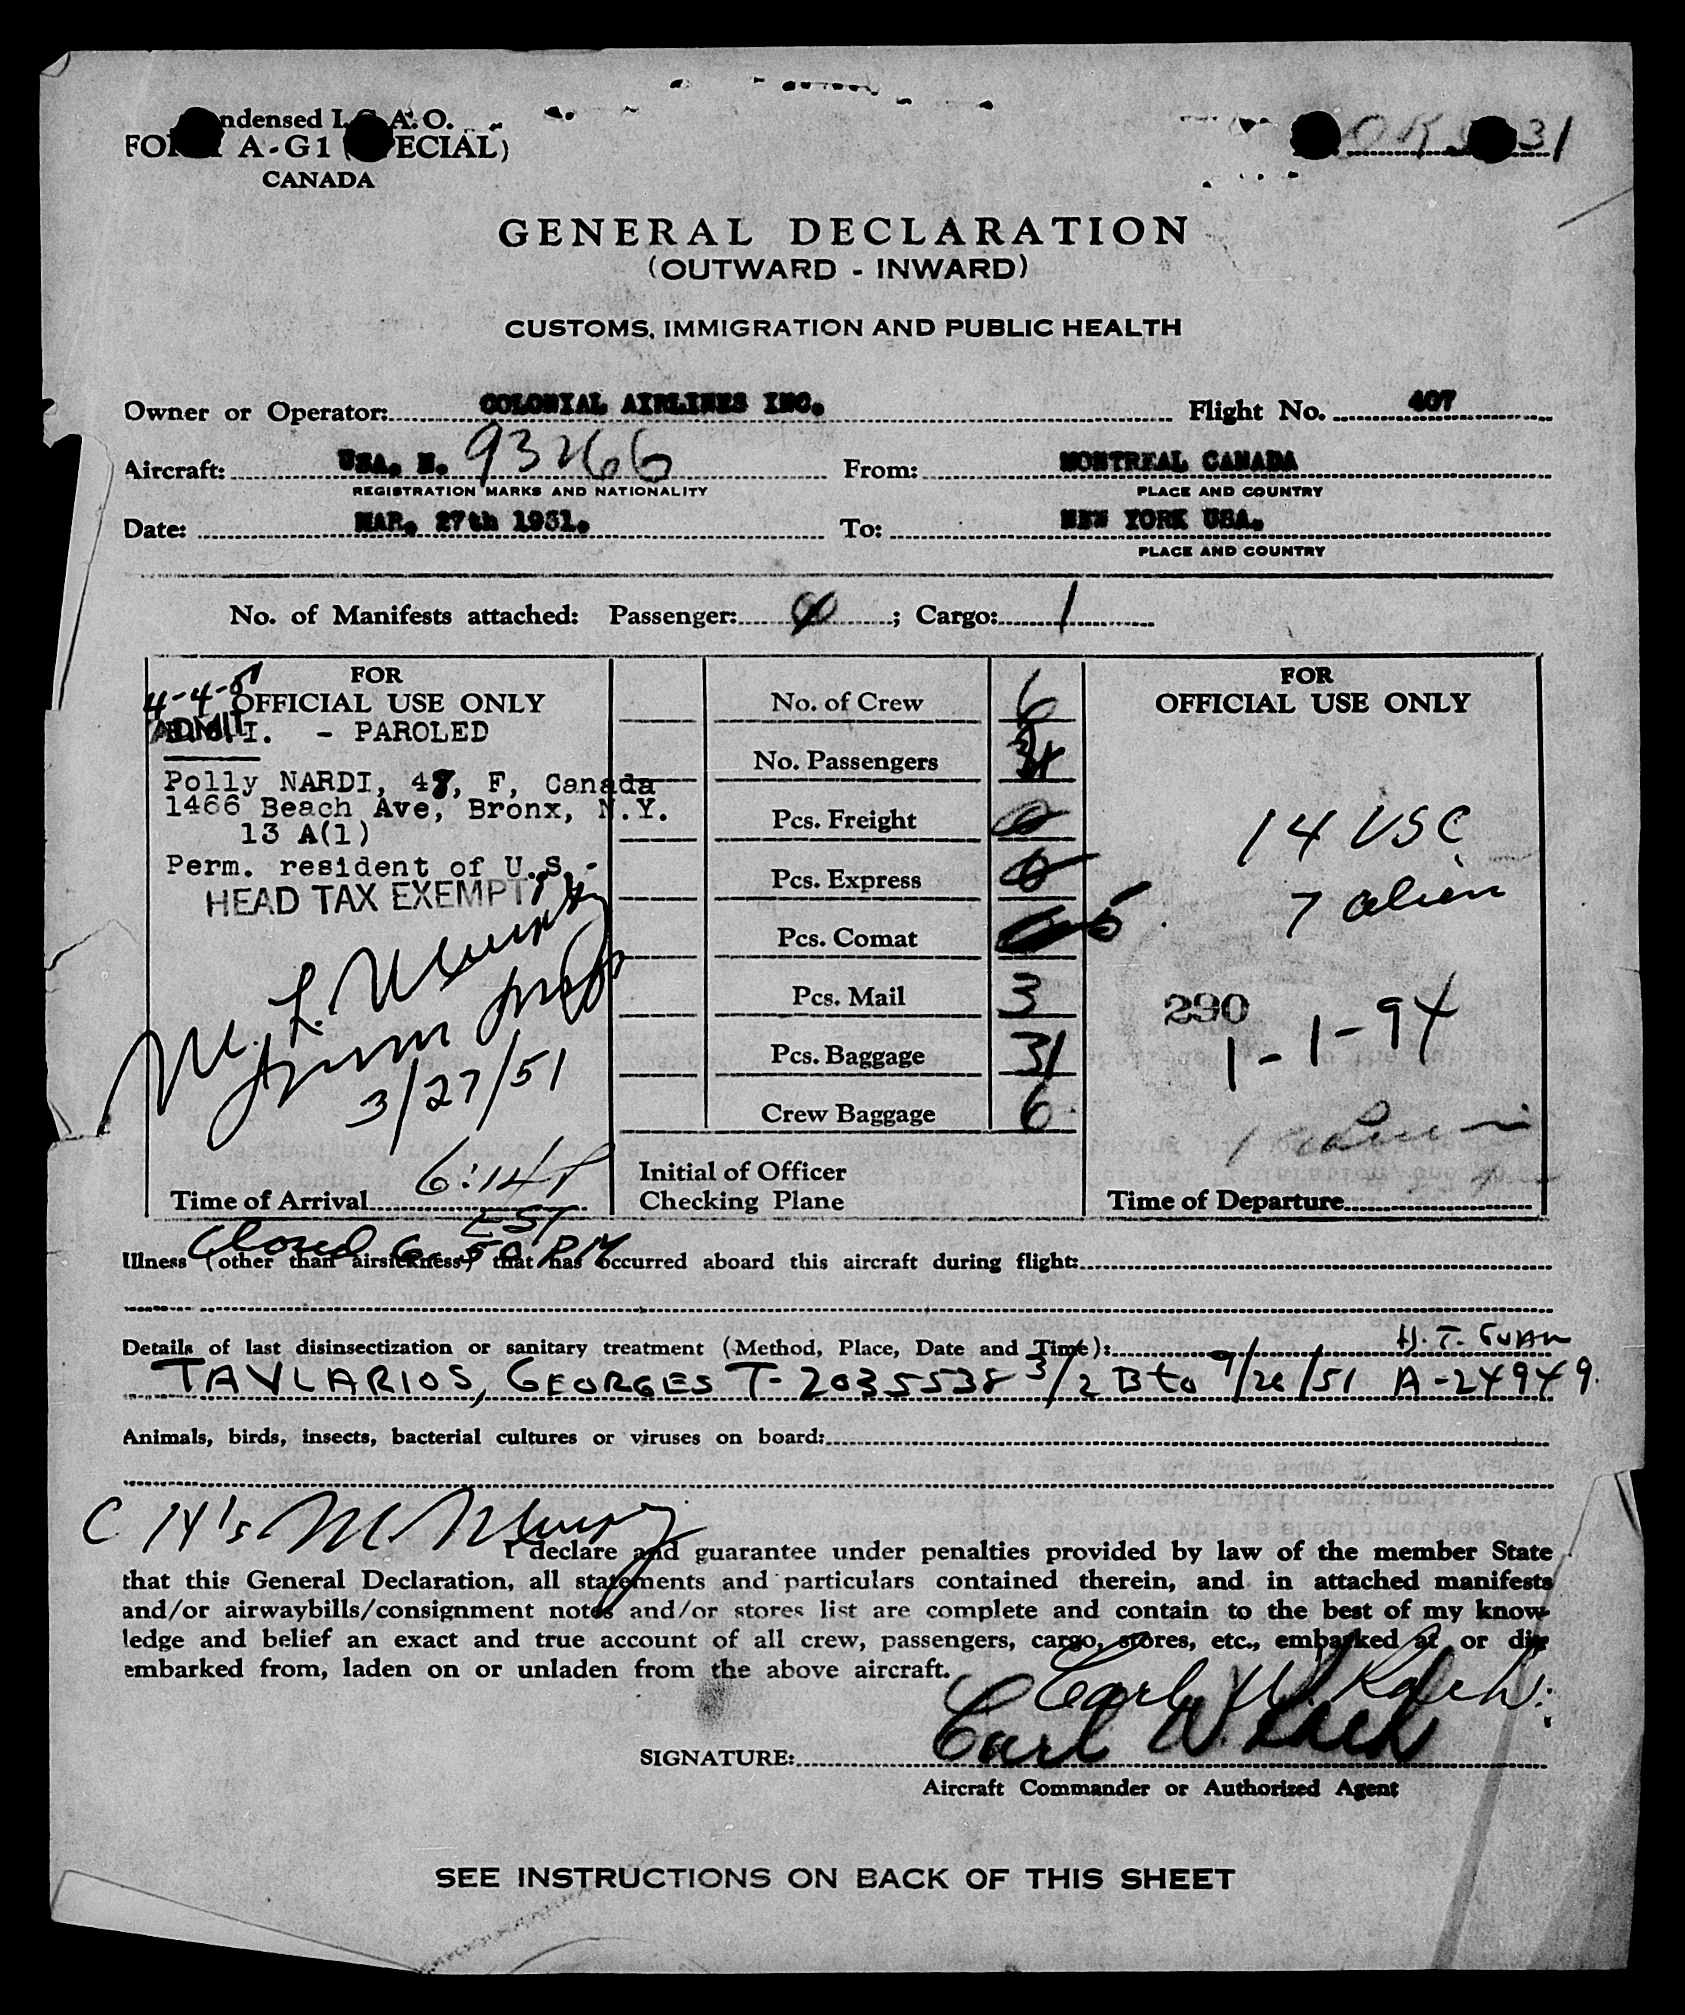 ndensed I. A. O.
FO A-G1 ( ECIAL)
CANADA
OK 31
GENERAL DECLARATION
(OUTWARD - INWARD)
CUSTOMS, IMMIGRATION AND PUBLIC HEALTH
Owner or Operator: COLONIAL AIRLINES INC. Flight No. 407
Aircraft: USA. N. 93266 From: MONTREAL CANADA
REGISTRATION MARKS AND NATIONALITY PLACE AND COUNTRY
Date: MAR. 27th 1951. To: NEW YORK USA.
PLACE AND COUNTRY
No. of Manifests attached: Passenger: ; Cargo: 1
FOR
4-4-51 OFFICIAL USE ONLY
ADMIT I. - PAROLED
Polly NARDI, 48, F, Canada
1466 Beach Ave, Bronx, N.Y.
13 A(1)
Perm. resident of U.S.-
HEAD TAX EXEMPT
M. L. Murphy
3/27/51
Time of Arrival 6:14P
EST
Closed 6:50 PM
No. of Crew 6
No. Passengers
Pcs. Freight 0
Pcs. Express 0
Pcs. Comat 5
Pcs. Mail 3
Pcs. Baggage 31
Crew Baggage 6
Initial of Officer
Checking Plane
FOR
OFFICIAL USE ONLY
14 USC
7 alien
290
1-1-94
Time of Departure
Illness (other than airsickness) that has occurred aboard this aircraft during flight:
Details of last disinsectization or sanitary treatment (Method, Place, Date and Time):
H. T.
TAVLARIOS, GEORGES T-2035538 3/2 B to 9/26/51 A-24949.
Animals, birds, insects, bacterial cultures or viruses on board:
C H's M. Murphy
I declare and guarantee under penalties provided by law of the member State
that this General Declaration, all statements and particulars contained therein, and in attached manifests
and/or airwaybills/consignment notes and/or stores list are complete and contain to the best of my know-
ledge and belief an exact and true account of all crew, passengers, cargo, stores, etc., embarked at or dis-
embarked from, laden on or unladen from the above aircraft.
Carl W.
SIGNATURE: Carl W.
Aircraft Commander or Authorized Agent
SEE INSTRUCTIONS ON BACK OF THIS SHEET